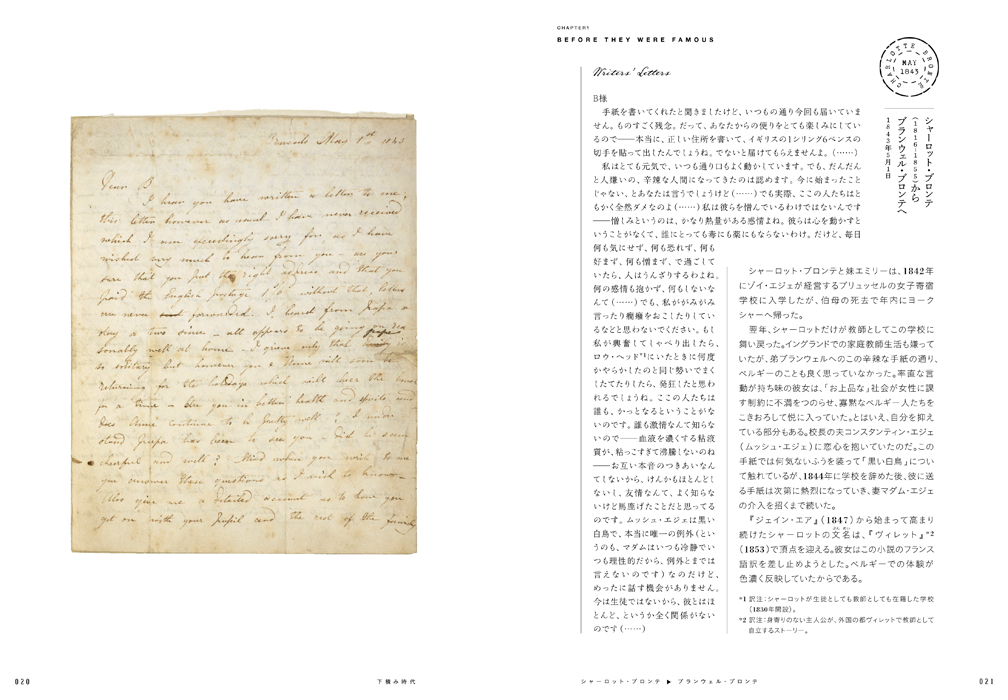 Brussels May 1st 1843
Dear B
I hear you have written a letter to me;
this letter however as usual I have never received
which I am exceedingly sorry for, as I have
wished very much to hear from you – are you
sure that you put the right address and that you
paid the English postage 1s 6d without that, letters
are never forwarded. I heard from Papa a
day or two since – all appears to be going on rea
sonably well at home – I grieve only that
so solitary but however you & Anne will soon be
returning for the holidays which will cheer the house
for a time – Are you in better health and spirits and
does Anne continue to be pretty well? I under
stand Papa has been to see you – did he seem
cheerful and well? Mind when you write to me
you answer these questions as I wish to know –
Also give me a detailed account as to how you
get on with your Pupil and the rest of the family
020
下積み時代
CHAPTER1
BEFORE THEY WERE FAMOUS
CHARLOTTE BRONTE
MAY
1843
シャーロット・ブロンテ
（1816-1855）から
ブランウェル・ブロンテへ
1843年5月1日
Writers' Letters
B様
手紙を書いてくれたと聞きましたけど、いつもの通り今回も届いていま
せん。ものすごく残念。だって、あなたからの便りをとても楽しみにしてい
るので――本当に、正しい住所を書いて、イギリスの1シリング6ペンスの
切手を貼って出したんでしょうね。でないと届けてもらえませんよ。（……）
私はとても元気で、いつも通り口もよく動かしています。でも、だんだん
と人嫌いの、辛辣な人間になってきたのは認めます。今に始まったこと
じゃない、とあなたは言うでしょうけど（……）でも実際、ここの人たちはと
もかく全然ダメなのよ（……）私は彼らを憎んでいるわけではないんです
――憎しみというのは、かなり熱量がある感情よね。彼らは心を動かすと
いうことがなくて、誰にとっても毒にも薬にもならないわけ。だけど、毎日
何も気にせず、何も恐れず、何も
好まず、何も憎まず、で過ごして
いたら、人はうんざりするわよね。
何の感情も抱かず、何もしないな
んて（……）でも、私ががみがみ
言ったり癇癪をおこしたりしてい
るなどと思わないでください。もし
私が興奮してしゃべり出したら、
ロウ・ヘッド*1にいたときに何度
かやらかしたのと同じ勢いでまく
したてたりしたら、発狂したと思わ
れるでしょうね。ここの人たちは
誰も、かっとなるということがな
いのです。誰も激情なんて知らな
いので――血液を濃くする粘液
質が、粘っこすぎて沸騰しないのね
――お互い本音のつきあいなん
てしないから、けんかもほとんど
しないし、友情なんて、よく知らな
いけど馬鹿げたことだと思ってる
のです。ムッシュ・エジェは黒い
白鳥で、本当に唯一の例外（とい
うのも、マダムはいつも冷静でい
つも理性的だから、例外とまでは
言えないのです）なのだけど、
めったに話す機会がありません。
今は生徒ではないから、彼とはほ
とんど、というか全く関係がない
のです（……）
シャーロット・ブロンテと妹エミリーは、1842年
にゾイ・エジェが経営するブリュッセルの女子寄宿
学校に入学したが、伯母の死去で年内にヨーク
シャーへ帰った。
翌年、シャーロットだけが教師としてこの学校に
舞い戻った。イングランドでの家庭教師生活も嫌ってい
たが、弟ブランウェルへのこの辛辣な手紙の通り、
ベルギーのことも良く思っていなかった。率直な言
動が持ち味の彼女は、「お上品な」社会が女性に課
す制約に不満をつのらせ、寡黙なベルギー人たちを
こきおろして悦に入っていた。とはいえ、自分を抑え
ている部分もある。校長の夫コンスタンティン・エジェ
（ムッシュ・エジェ）に恋心を抱いていたのだ。この
手紙では何気ないふうを装って「黒い白鳥」につい
て触れているが、1844年に学校を辞めた後、彼に送
る手紙は次第に熱烈になっていき、妻マダム・エジェ
の介入を招くまで続いた。
『ジェイン・エア』（1847）から始まって高まり
続けたシャーロットの文名は、『ヴィレット』*2
（1853）で頂点を迎える。彼女はこの小説のフランス
語訳を差し止めようとした。ベルギーでの体験が
色濃く反映していたからである。
*1 訳注：シャーロットが生徒としても教師としても在籍した学校
（1830年開設）。
*2 訳注：身寄りのない主人公が、外国の都ヴィレットで教師として
自立するストーリー。
シャーロット・ブロンテ ▶ ブランウェル・ブロンテ
021